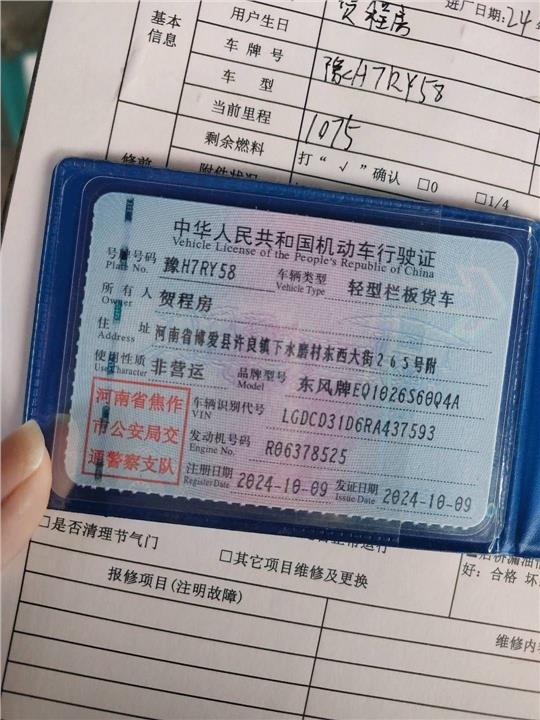 进厂日期:24
用户生日
贺程房
基本
信息
车牌号
豫H7RY58
车 型
当前里程
1075
剩余燃料
打“√”确认 □0 □1/4
附件状况
修前
中华人民共和国机动车行驶证
Vehicle License of the People's Republic of China
号牌号码 豫H7RY58 车辆类型 轻型栏板货车
Plate No. Vehicle Type
所有人 贺程房
Owner
住址 河南省博爱县许良镇下水磨村东西大街265号附
Address
使用性质 非营运 品牌型号 东风牌EQ1026S60Q4A
Use Character Model
河南省焦作
市公安局交
通警察支队
车辆识别代号 LGDCD31D6RA437593
VIN
发动机号码 R06378525
Engine No.
注册日期 2024-10-09 发证日期 2024-10-09
Register Date Issue Date
□是否清理节气门
□其它项目维修及更换
好：合格 坏
报修项目(注明故障)
维修内容